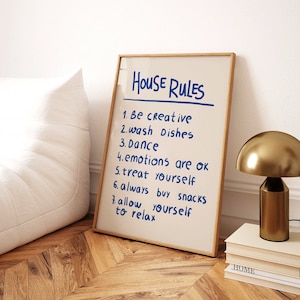 HOUSE RULES
1. Be creative
2. wash dishes
3. DANCE
4. emotions are ok
5. treat yourself
6. always buy snacks
7. allow yourself
to relax
HOME